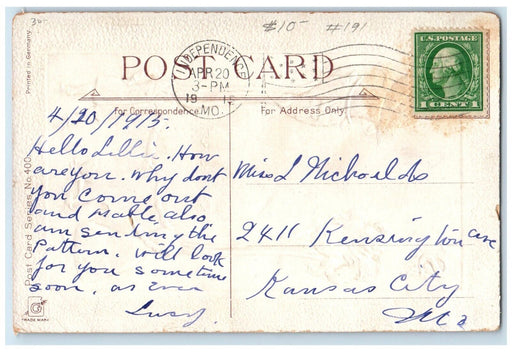 30-
$10- #191
U.S. POSTAGE
1 CENT 1
POST CARD
INDEPENDENCE
APR 20
3-PM
19
MO.
For Correspondence.
For Address Only.
Printed in Germany.
Post Card Series No. 400
TRADE MARK
4/20/1915-
Hello Lillie. How
are you. Why dont
you come out
and Mable also
am sending the
pattern. will look
for you sometime
soon, as ever
Lucy.
Miss L
2411 Kensington ave
Kansas City
Mo